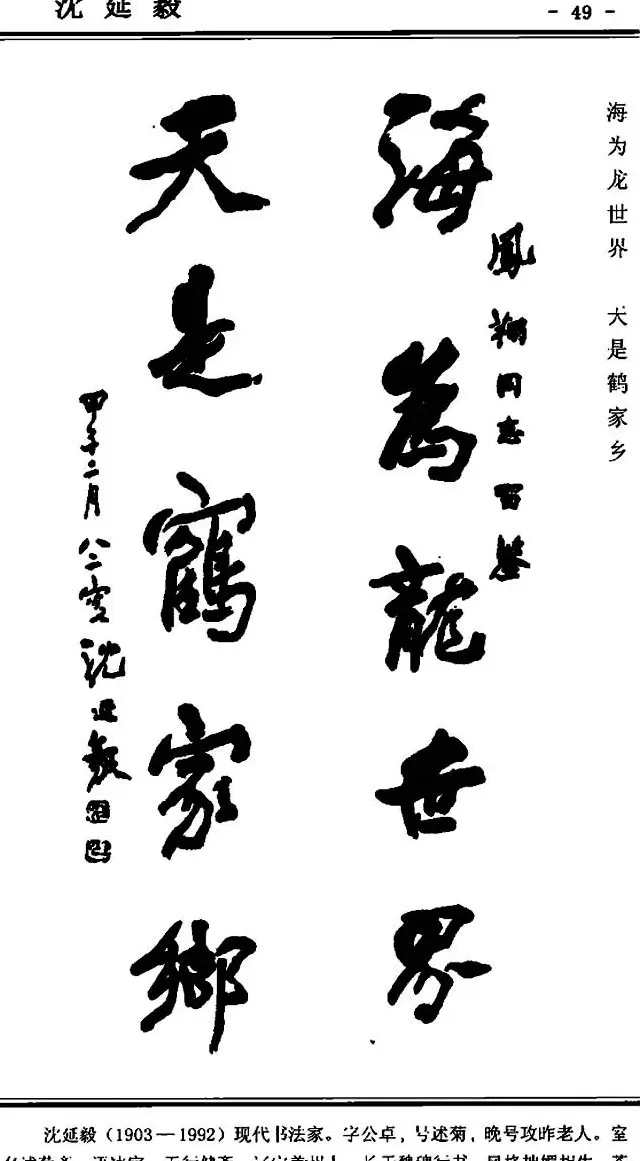 沈延毅
- 49 -
海为龙世界　天是鹤家乡
鳳翔同志留鑒
海為龍世界
天是鶴家鄉
甲子二月 八二叟沈延毅
沈延毅（1903—1992）现代书法家。字公卓，号述菊，晚号攻昨老人。室